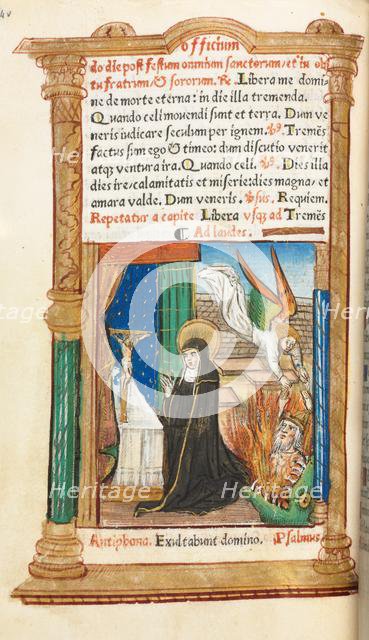 officium
do die post festum omnium sanctorum/et in ob
itu fratrum & sororum. Re. Libera me domi
ne de morte eterna: in die illa tremenda.
Quando celi movendi sunt et terra. Dum ve
neris iudicare seculum per ignem. Tremēs
factus sum ego & timeo: dum discutio venerit
atqz ventura ira. Quando celi. Dies illa
dies ire/calamitatis et miserie: dies magna/et
amara valde. Dum veneris. Requiem.
Repetatur a capite Libera usqz ad Tremēs
Ad laudes.
Heritage Heritage
Heritage Heritage
Heritage Heritage
Antiphona. Exultabunt domino. Psalmus